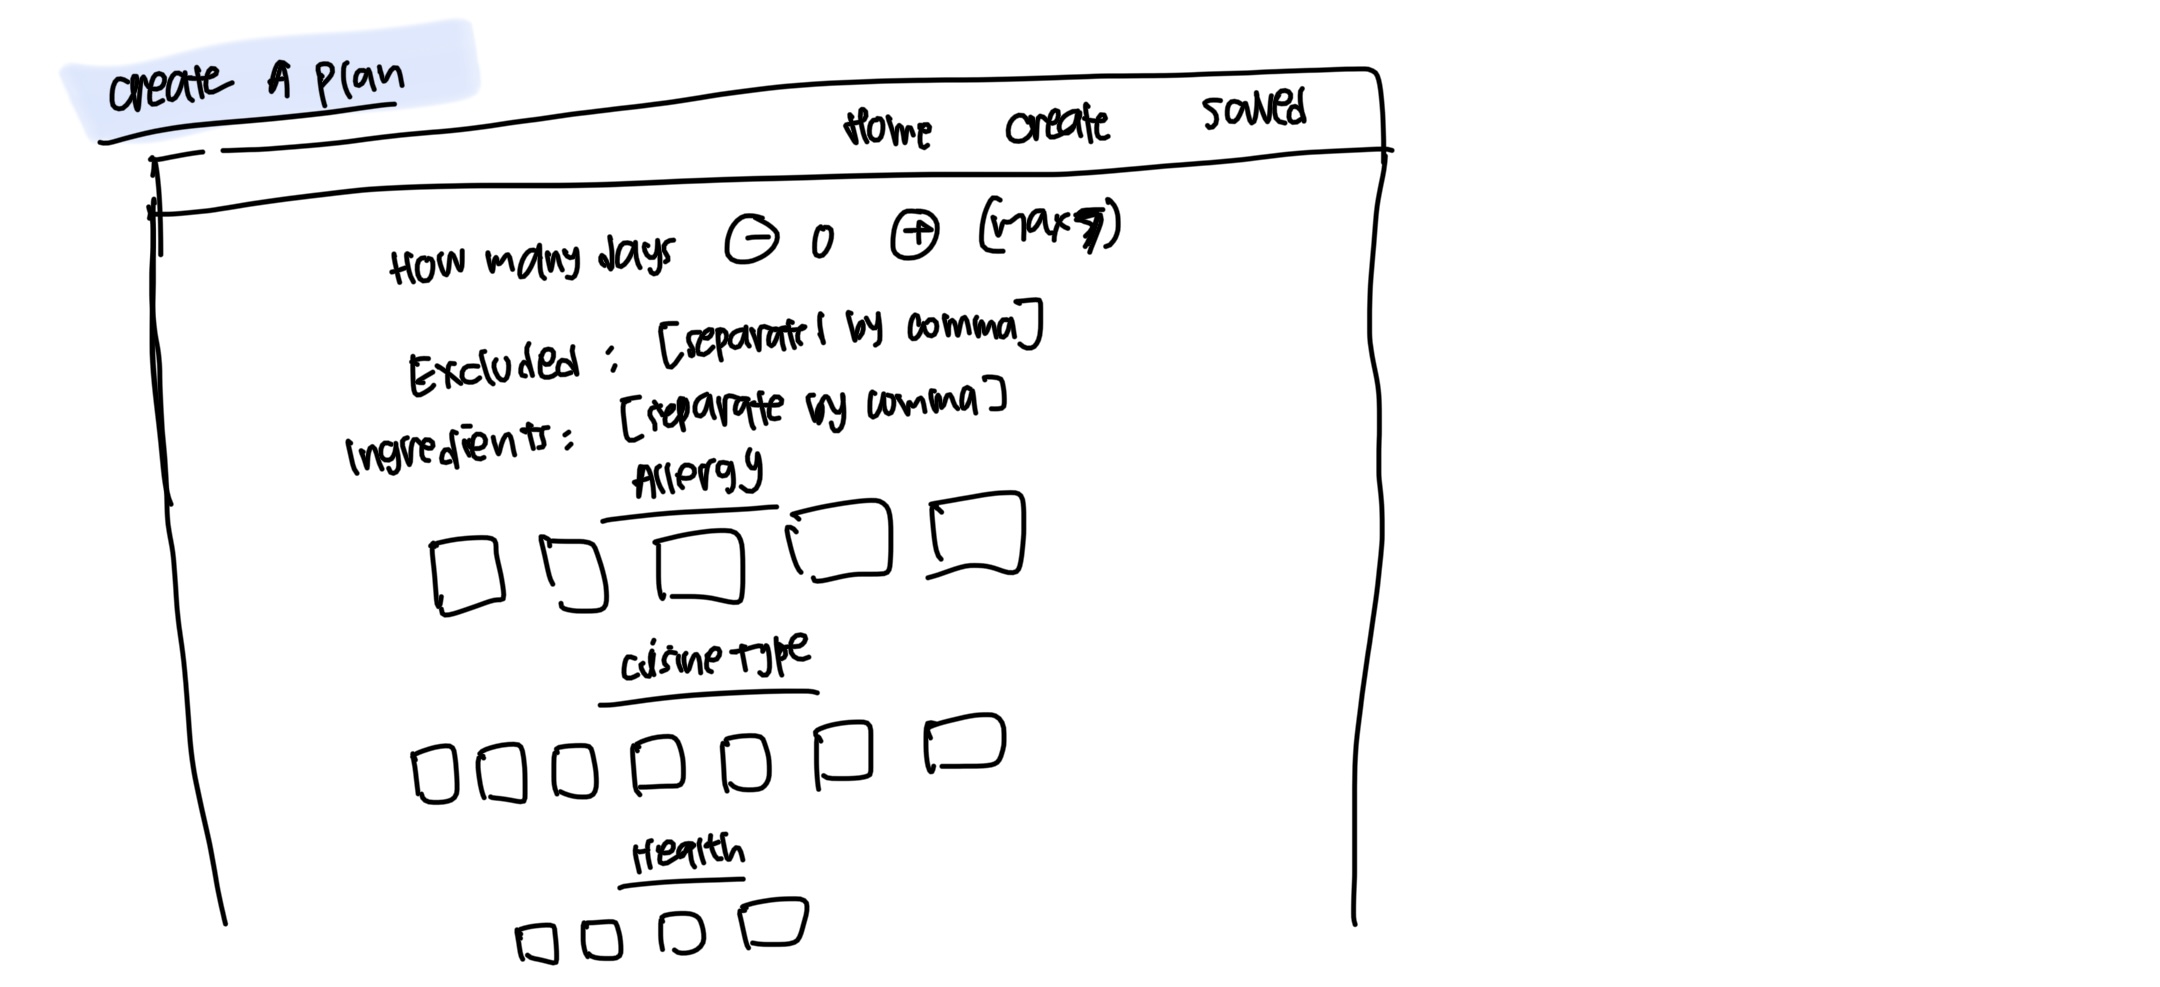 create A plan
Home create saved
How many days - 0 + (max 7)
Excluded : [separate by comma]
Ingredients: [separate by comma]
Allergy
cuisine type
Health